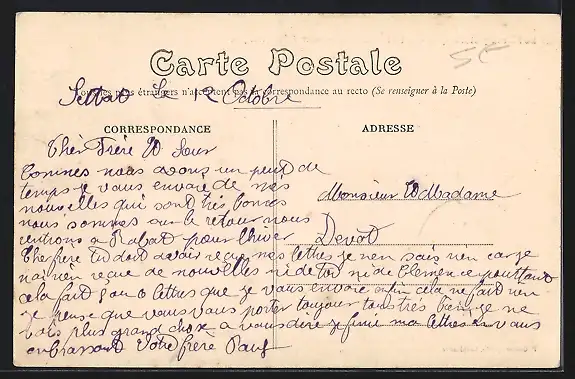 Carte Postale
Tous les pays étrangers n'acceptent pas la correspondance au recto (Se renseigner à la Poste)
Settat Le 12 Octobre
CORRESPONDANCE
ADRESSE
Cher Frère Et Sœur
Commes nous avons un peut de
temps je vous envoie de mes
nouvelles qui sont très bonnes
nous sommes sur le retour nous
rentrons a Rabat pour l'hiver
Monsieur Et Madame
Devot
Cher frère tu doit avoir reçu mes lettres je nen sais rien car je
n'ai rien reçue de nouvelles ni de toi ni de Clemence pourttant
cela fait 5 ou 6 lettres que je vous envoie enfin cela ne fait rien
je pense que vous vous porter toujour tous très bien je ne
vois plus grand chose a vous dire je finie ma lettre en vous
embrassant Votre frère Paul